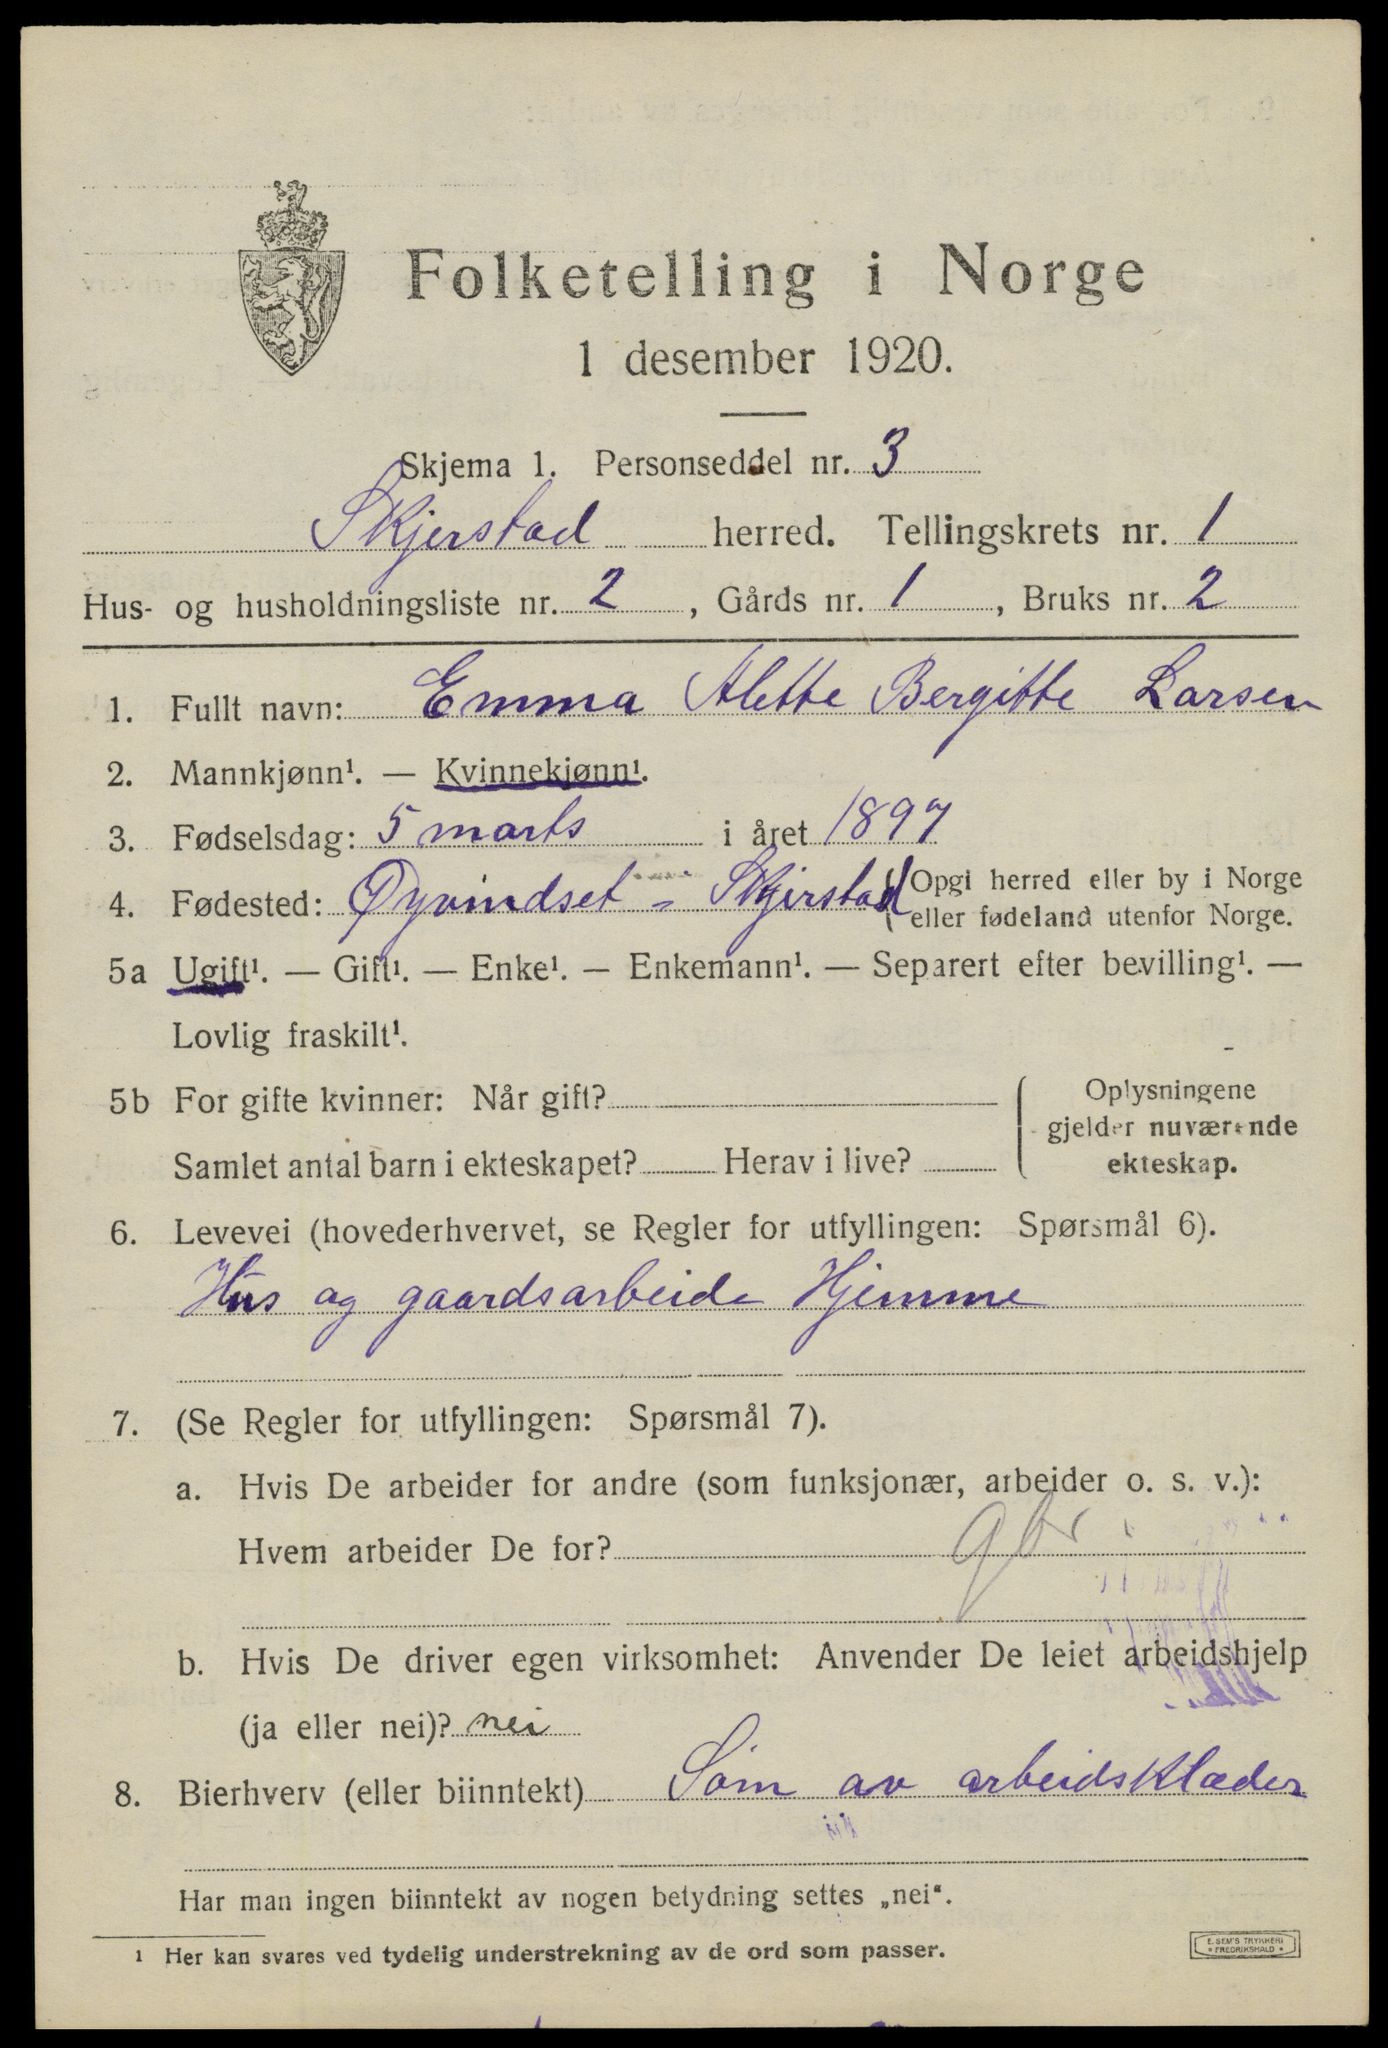 Folketelling i Norge
1 desember 1920.
Skjema 1. Personseddel nr. 3
Skjerstad herred. Tellingskrets nr. 1
Hus- og husholdningsliste nr. 2, Gårds nr. 1, Bruks nr. 2
1. Fullt navn: Emma Alette Bergitte Larsen
2. Mannkjønn¹. — Kvinnekjønn¹.
3. Fødselsdag: 5 marts i året 1897
4. Fødested: Øyvindset - Skjerstad Opgi herred eller by i Norge
eller fødeland utenfor Norge.
5a Ugift¹. — Gift¹. — Enke¹. — Enkemann¹. — Separert efter bevilling¹. —
Lovlig fraskilt¹.
5b For gifte kvinner: Når gift?
Samlet antal barn i ekteskapet? Herav i live?
Oplysningene
gjelder nuværende
ekteskap.
6. Levevei (hovederhvervet, se Regler for utfyllingen: Spørsmål 6).
Hus og gaardsarbeide Hjemme
7. (Se Regler for utfyllingen: Spørsmål 7).
a. Hvis De arbeider for andre (som funksjonær, arbeider o. s. v.):
Hvem arbeider De for?
b. Hvis De driver egen virksomhet: Anvender De leiet arbeidshjelp
(ja eller nei)? nei
8. Bierhverv (eller biinntekt) Söm av arbeidsklæder
Har man ingen biinntekt av nogen betydning settes „nei“.
¹ Her kan svares ved tydelig understrekning av de ord som passer.
E. SEM'S TRYKKERI
* FREDRIKSHALD *